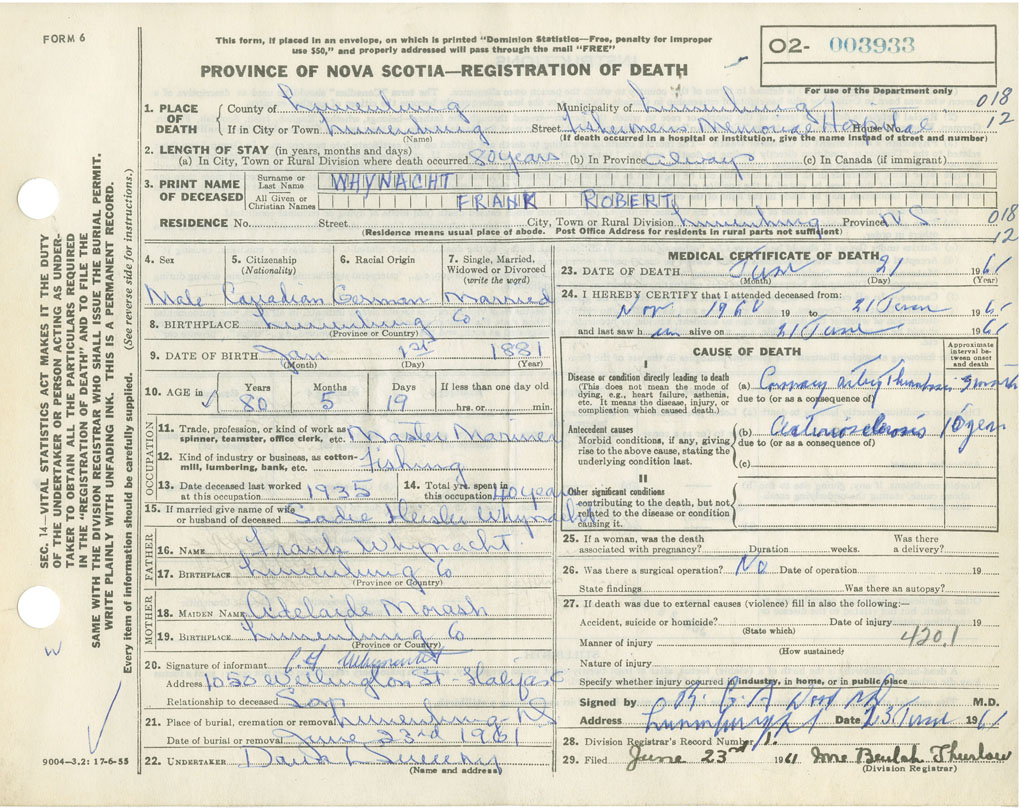 FORM 6
This form, if placed in an envelope, on which is printed "Dominion Statistics—Free, penalty for improper
use $50," and properly addressed will pass through the mail "FREE"
O2- 003933
PROVINCE OF NOVA SCOTIA—REGISTRATION OF DEATH
For use of the Department only
1. PLACE OF DEATH { County of Lunenburg Municipality of Lunenburg 018
If in City or Town Lunenburg Street Fishermens Memorial Hospital House No. 12
(Name) (If death occurred in a hospital or institution, give the name instead of street and number)
2. LENGTH OF STAY (in years, months and days)
(a) In City, Town or Rural Division where death occurred 80 years (b) In Province always (c) In Canada (if immigrant)
3. PRINT NAME OF DECEASED Surname or Last Name WHYNACHT
All Given or Christian Names FRANK ROBERT
RESIDENCE No. Street City, Town or Rural Division Lunenburg Province N S 018
(Residence means usual place of abode. Post Office Address for residents in rural parts not sufficient) 12
4. Sex 5. Citizenship (Nationality) 6. Racial Origin 7. Single, Married, Widowed or Divorced (write the word)
Male Canadian German Married
8. BIRTHPLACE Lunenburg Co
(Province or Country)
9. DATE OF BIRTH Jan 1st 1881
(Month) (Day) (Year)
10. AGE in Years Months Days If less than one day old
80 5 19 hrs. or min.
OCCUPATION
11. Trade, profession, or kind of work as spinner, teamster, office clerk, etc. Master Mariner
12. Kind of industry or business, as cotton-mill, lumbering, bank, etc. Fishing
13. Date deceased last worked at this occupation 1935 14. Total yrs. spent in this occupation 40 years
15. If married give name of wife or husband of deceased Sadie Heisler Whynacht
FATHER
16. NAME Frank Whynacht
17. BIRTHPLACE Lunenburg Co
(Province or Country)
MOTHER
18. MAIDEN NAME Adelaide Morash
19. BIRTHPLACE Lunenburg Co
(Province or Country)
20. Signature of informant Whynacht
Address 1050 Wellington St - Halifax
Relationship to deceased Son
21. Place of burial, cremation or removal Lunenburg - NS
Date of burial or removal June 23rd 1961
22. UNDERTAKER David
(Name and address)
MEDICAL CERTIFICATE OF DEATH
23. DATE OF DEATH June 21 1961
(Month) (Day) (Year)
24. I HEREBY CERTIFY that I attended deceased from:
Nov. 1960 19 to 21 June 196
and last saw h im alive on 21 June 1961
CAUSE OF DEATH
Approximate interval between onset and death
I
Disease or condition directly leading to death (a) Coronary artery Thrombosis
(This does not mean the mode of dying, e.g., heart failure, asthenia, etc. It means the disease, injury, or complication which caused death.)
due to (or as a consequence of)
Antecedent causes (b) Arteriosclerosis 10 years
Morbid conditions, if any, giving rise to the above cause, stating the underlying condition last.
due to (or as a consequence of)
(c)
II
Other significant conditions contributing to the death, but not related to the disease or condition causing it.
25. If a woman, was the death associated with pregnancy? Duration weeks. Was there a delivery?
26. Was there a surgical operation? No Date of operation 19
State findings Was there an autopsy?
27. If death was due to external causes (violence) fill in also the following:—
Accident, suicide or homicide? Date of injury 19
(State which)
420.1
Manner of injury
(How sustained)
Nature of injury
Specify whether injury occurred in industry, in home, or in public place
Signed by R. G. A. Wood M.D.
Address Lunenburg Date 23 June 1961
28. Division Registrar's Record Number 1.
29. Filed June 23rd 1961 Mrs Beulah Thurlow
(Division Registrar)
SEC. 14—VITAL STATISTICS ACT MAKES IT THE DUTY
OF THE UNDERTAKER OR PERSON ACTING AS UNDER-
TAKER TO OBTAIN ALL THE PARTICULARS REQUIRED
IN THE "REGISTRATION OF DEATH" AND TO FILE THE
SAME WITH THE DIVISION REGISTRAR WHO SHALL ISSUE THE BURIAL PERMIT.
WRITE PLAINLY WITH UNFADING INK. THIS IS A PERMANENT RECORD.
Every item of information should be carefully supplied. (See reverse side for instructions.)
W
9004—3.2: 17-6-55